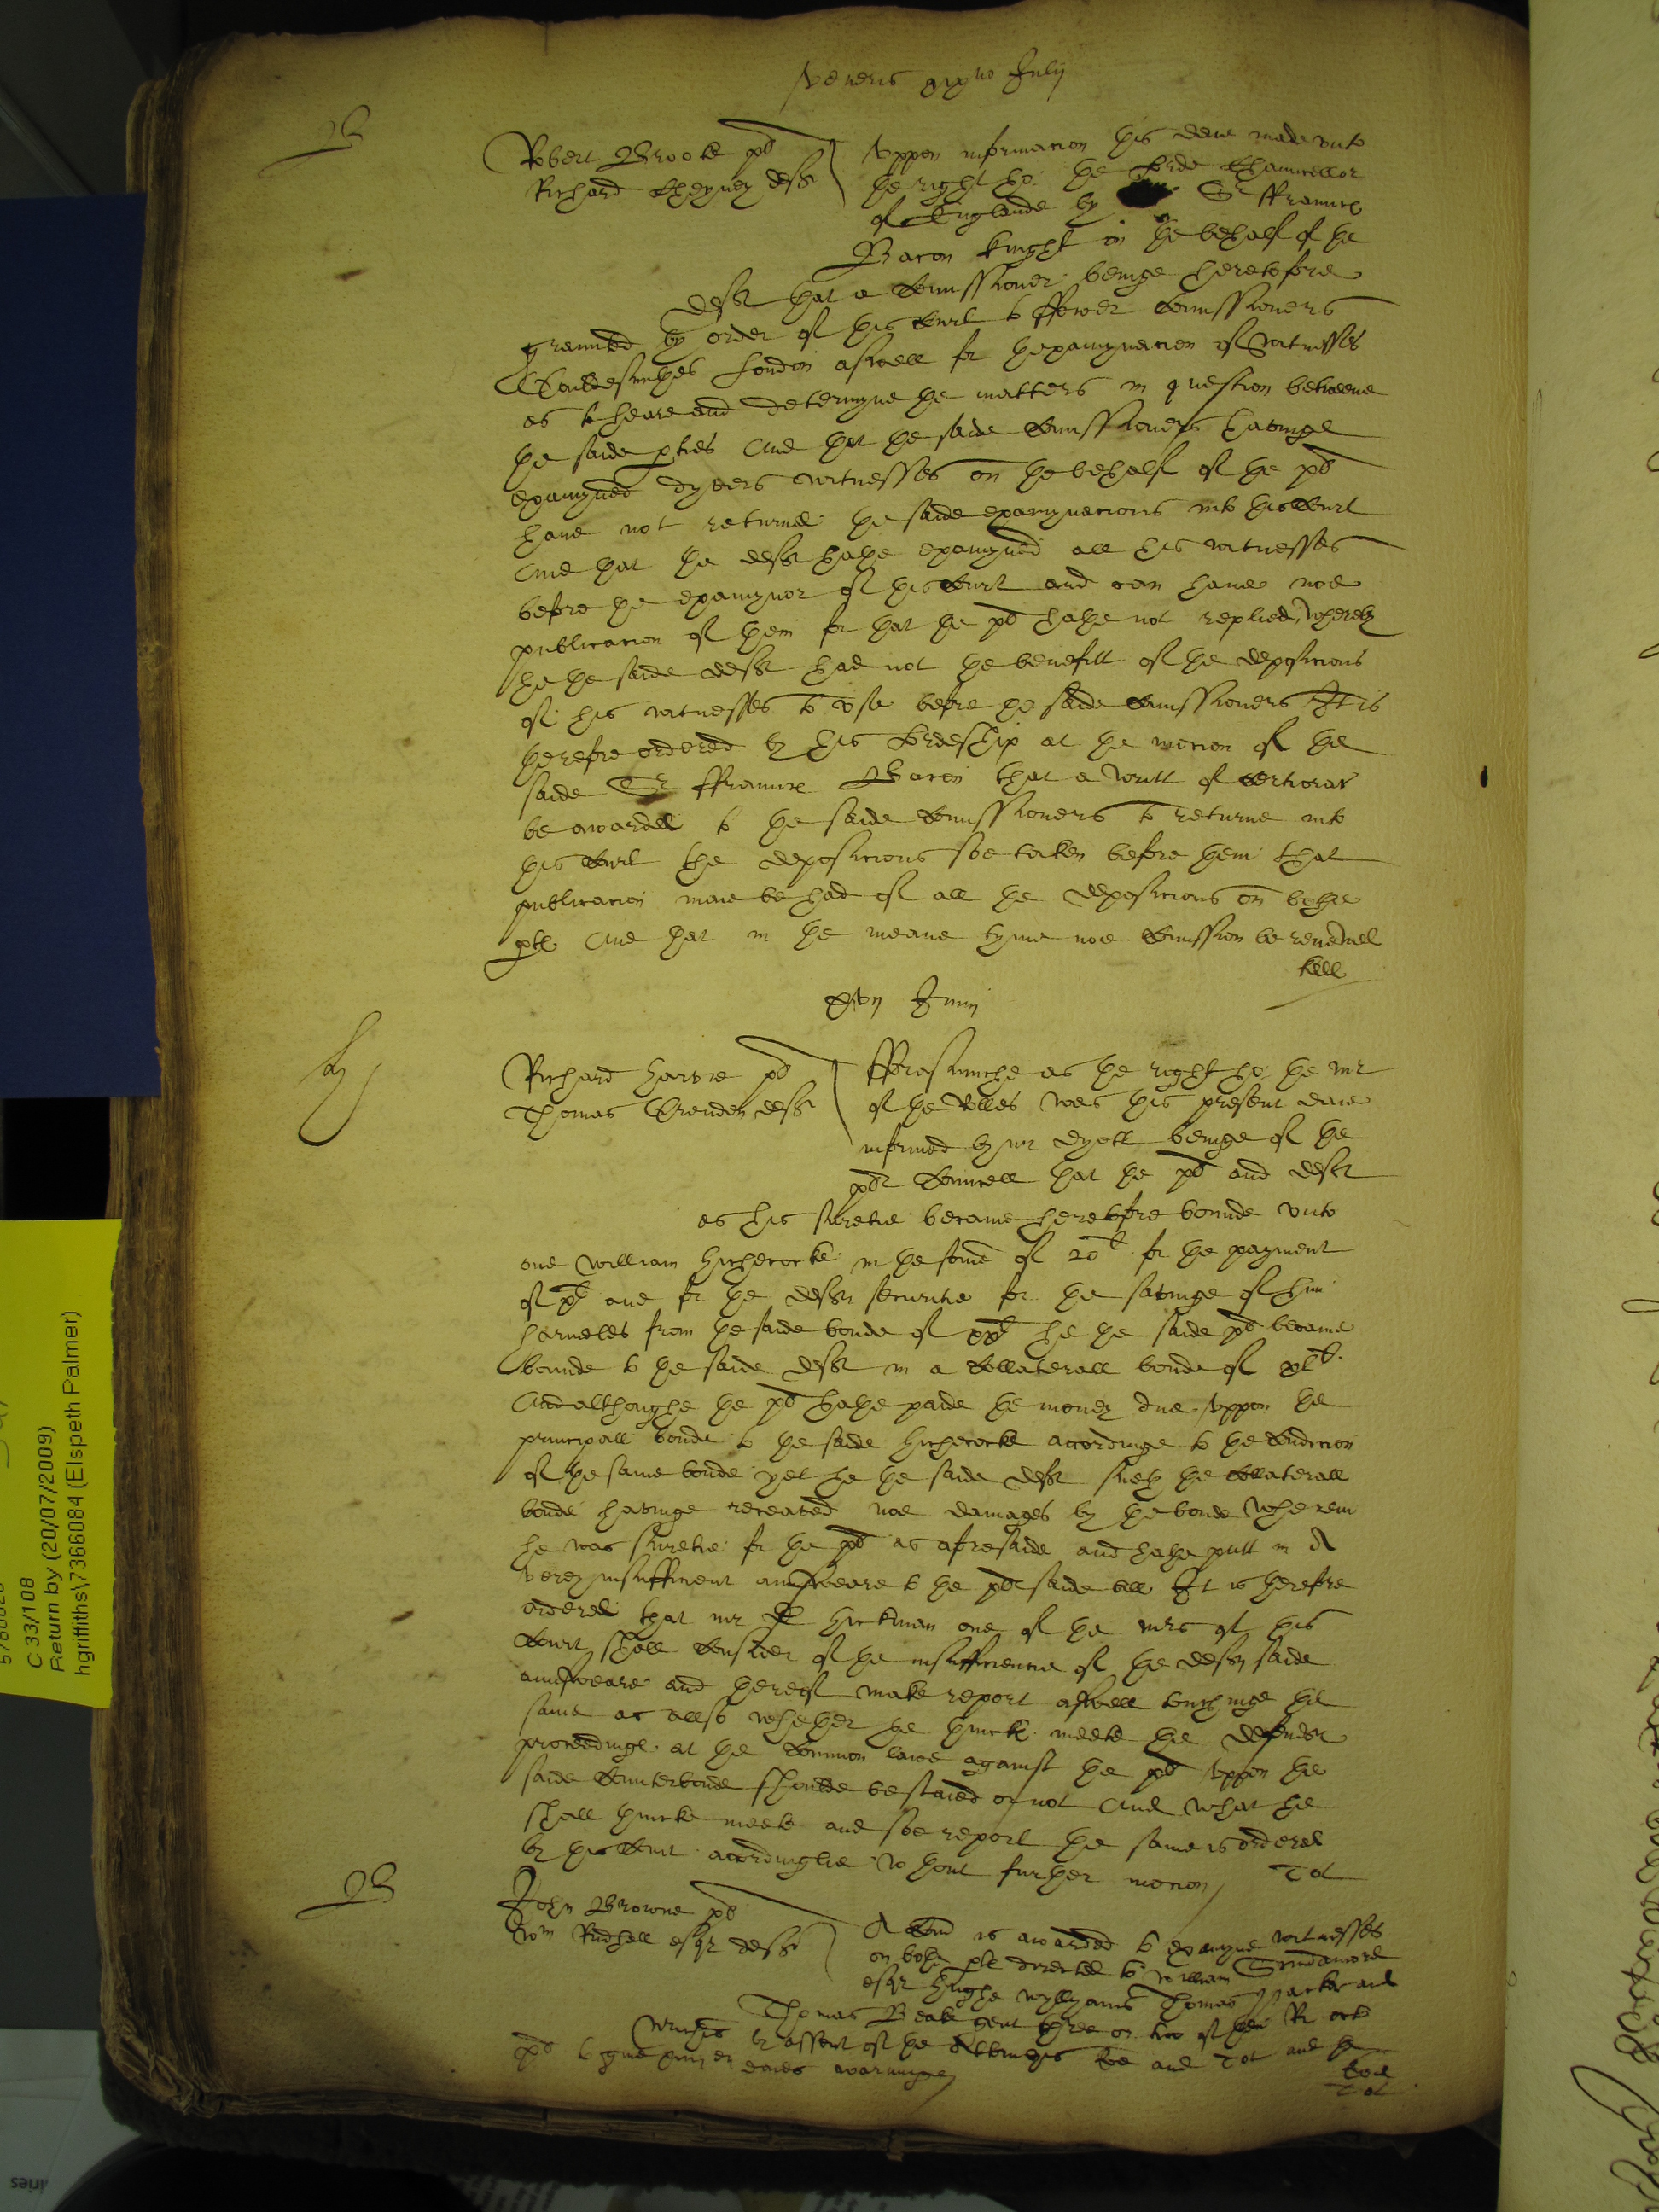 Veneris July
B
Robert Brooke pl
Richard Cheyney deft
Uppon informacion this daie made unto
the right ho: the Lorde Chauncellor
of Englande by Sr ffrauncs
Bacon knight on the behalf of the
deft that a Comissioner beinge heretofore
graunted by order of this Court to ffower Comissioners
London aswell for thexamynacion of witnesses
as to heare and determyne the matters in question betweene
the saide pties And that the saide Comissioners havinge
examyned dyvers witnesses on the behalf of the pl
have not returned the saide examynacions into this Court
And that the deft hathe examyned all his witnesses
before the examynor of this Court and can have noe
publicacion of them for that the pl hathe not replied, whereby
he the saide deft had not the benefitt of the deposicions
of his witnesses to use before the saide Comissioners It is
therefore ordered by his Lordeship at the mocion of the
saide Sr ffrauncs Bacon that a writt of Certiorar
be awarded to the saide Comissioners to returne into
this Court the deposicions soe taken before them that
publicacion maie be had of all the deposicions on bothe
ptes And that in the meane tyme noe Comission be renewed
xvij Junij
Richard Harvie pl
Thomas deft
fforasmuche as the right ho: the mr
of the Rolles was this present daie
informed by mr Dyott beinge of the
plts Councell that the pl and deft
as his suretie became heretofore bounde unto
one William Hichecocke in the some of 20l for the payment
of xl and for the defts securitie for the savinge of him
harmeles from the saide bonde of xxl he the saide pl became
bounde to the saide deft in a Collaterall bonde of xll
And althoughe the pl hathe paide the money due uppon the
principall bonde to the saide Hichecocke accordinge to the Condicion
of the same bonde yet he the saide deft sueth the Collaterall
bonde havinge receaved noe damages by the bonde wherein
he was suretie for the pl as aforesaide and hathe putt in A
verey insufficient aunsweare to the plts saide bill It is therefore
ordered that mr D Hickman one of the mrs of this
Court shall Consider of the insufficiencie of the defts saide
aunsweare and thereof make report aswell touchinge the
same as allso whether he thincke meete the deftes
proceedings at the Common lawe against the pl uppon the
saide Counterbonde shoulde be staied or not And what he
shall thincke meete and soe report the same is ordered
by this Court accordinglie without further mocion / Tot
B
John Browne pl
Wm Rudhall esqr deft
A Com is awarded to examyne witnesses
on bothe pts directed to William Scudamore
esqr Hughe Wyllyams Thomas and
Thomas gent three or two of them
by assent of the Attorneys and Tot and the
pl to give daies warninge /
Tot
C 33/108
Return by (20/07/2009)
hgriffiths\7366084 (Elspeth Palmer)